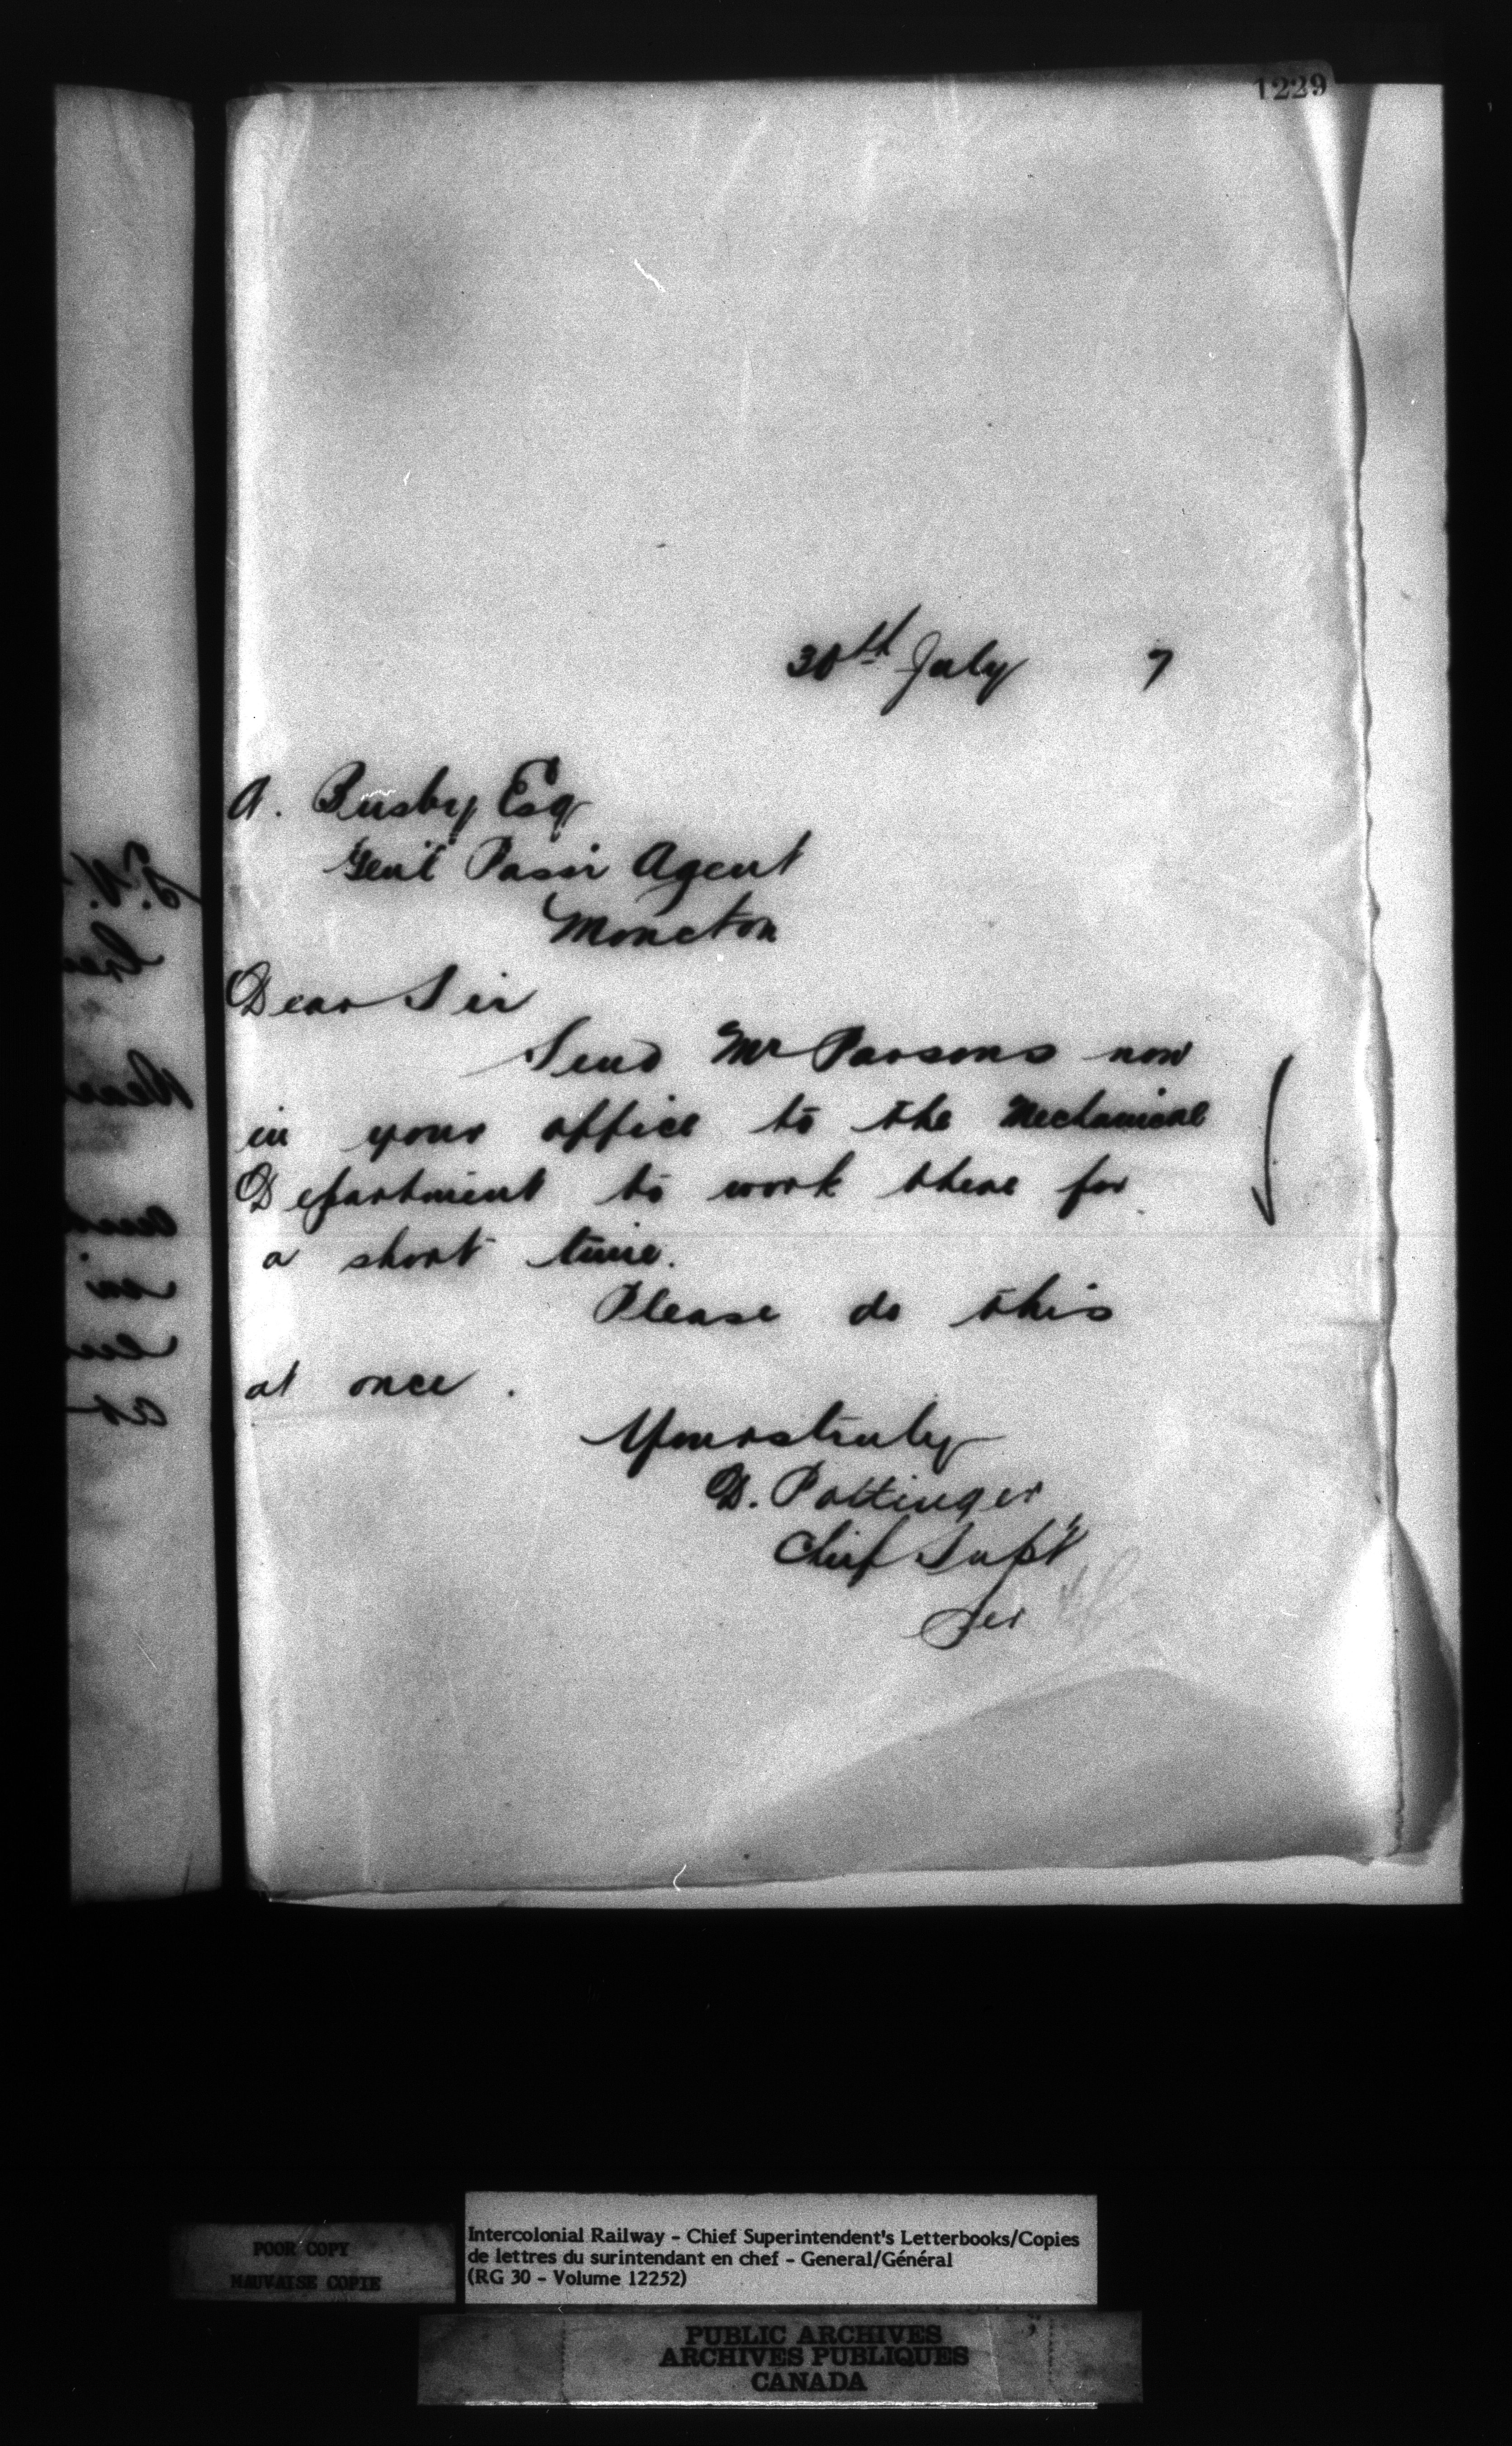 1229
30th July 7
A. Busby Esq
Genl Passr Agent
Moncton
Dear Sir
Send Mr Parsons now
in your office to the Mechanical
Department to work there for
a short time.
Please do this
at once.
Yours truly
D. Pottinger
Chief Supt
Per
POOR COPY
MAUVAISE COPIE
Intercolonial Railway - Chief Superintendent's Letterbooks/Copies
de lettres du surintendant en chef - General/Général
(RG 30 - Volume 12252)
PUBLIC ARCHIVES
ARCHIVES PUBLIQUES
CANADA